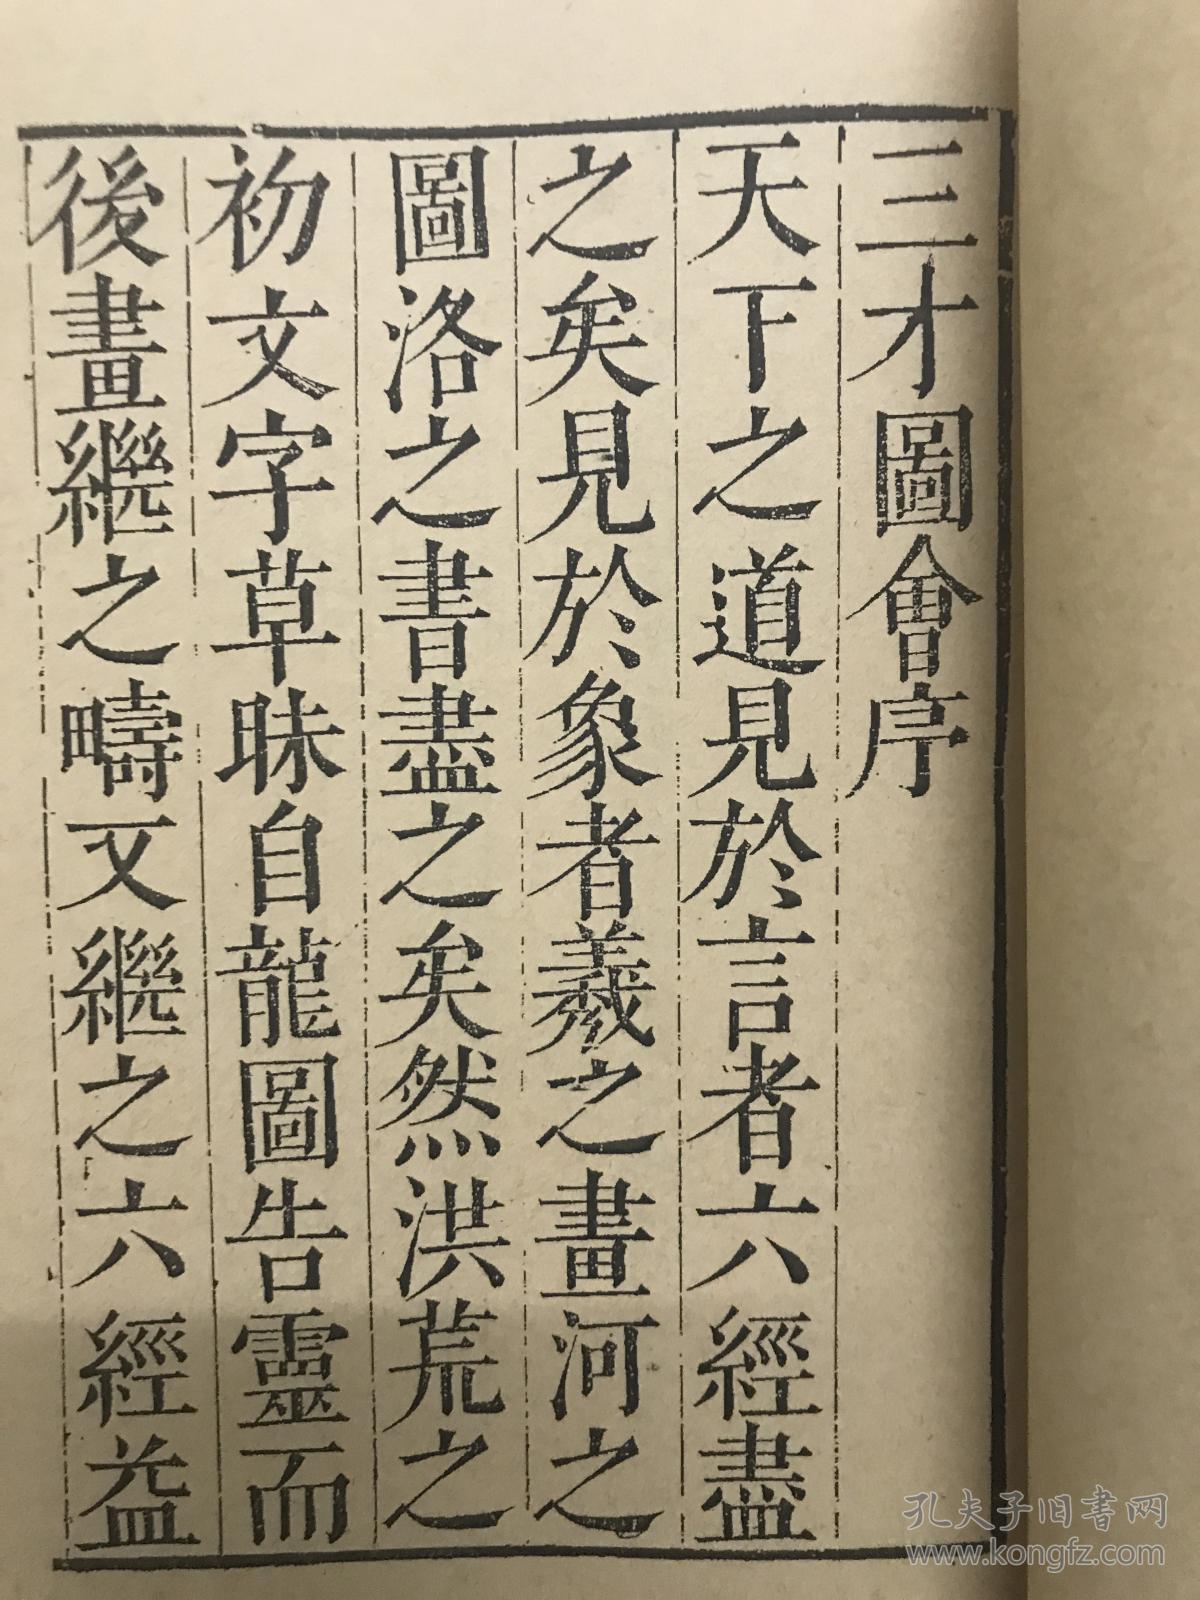 三才圖會序
天下之道見於言者六經盡
之矣見於象者羲之畫河之
圖洛之書盡之矣然洪荒之
初文字草昧自龍圖告靈而
後畫繼之疇又繼之六經益
孔夫子旧書网
www.kongfz.com